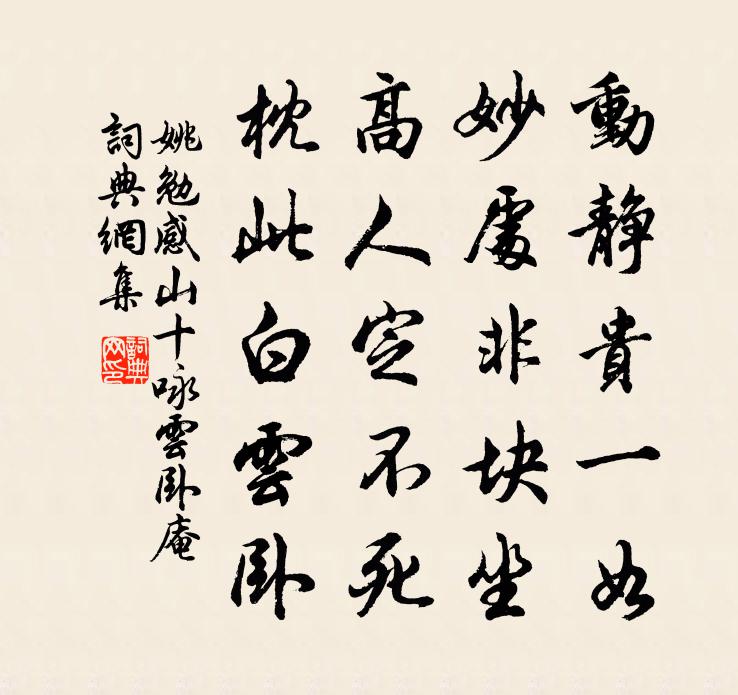 動靜貴一如
妙處非块坐
高人定不死
枕此白雲卧
姚勉感山十咏雲卧庵
詞典網集
詞典網印